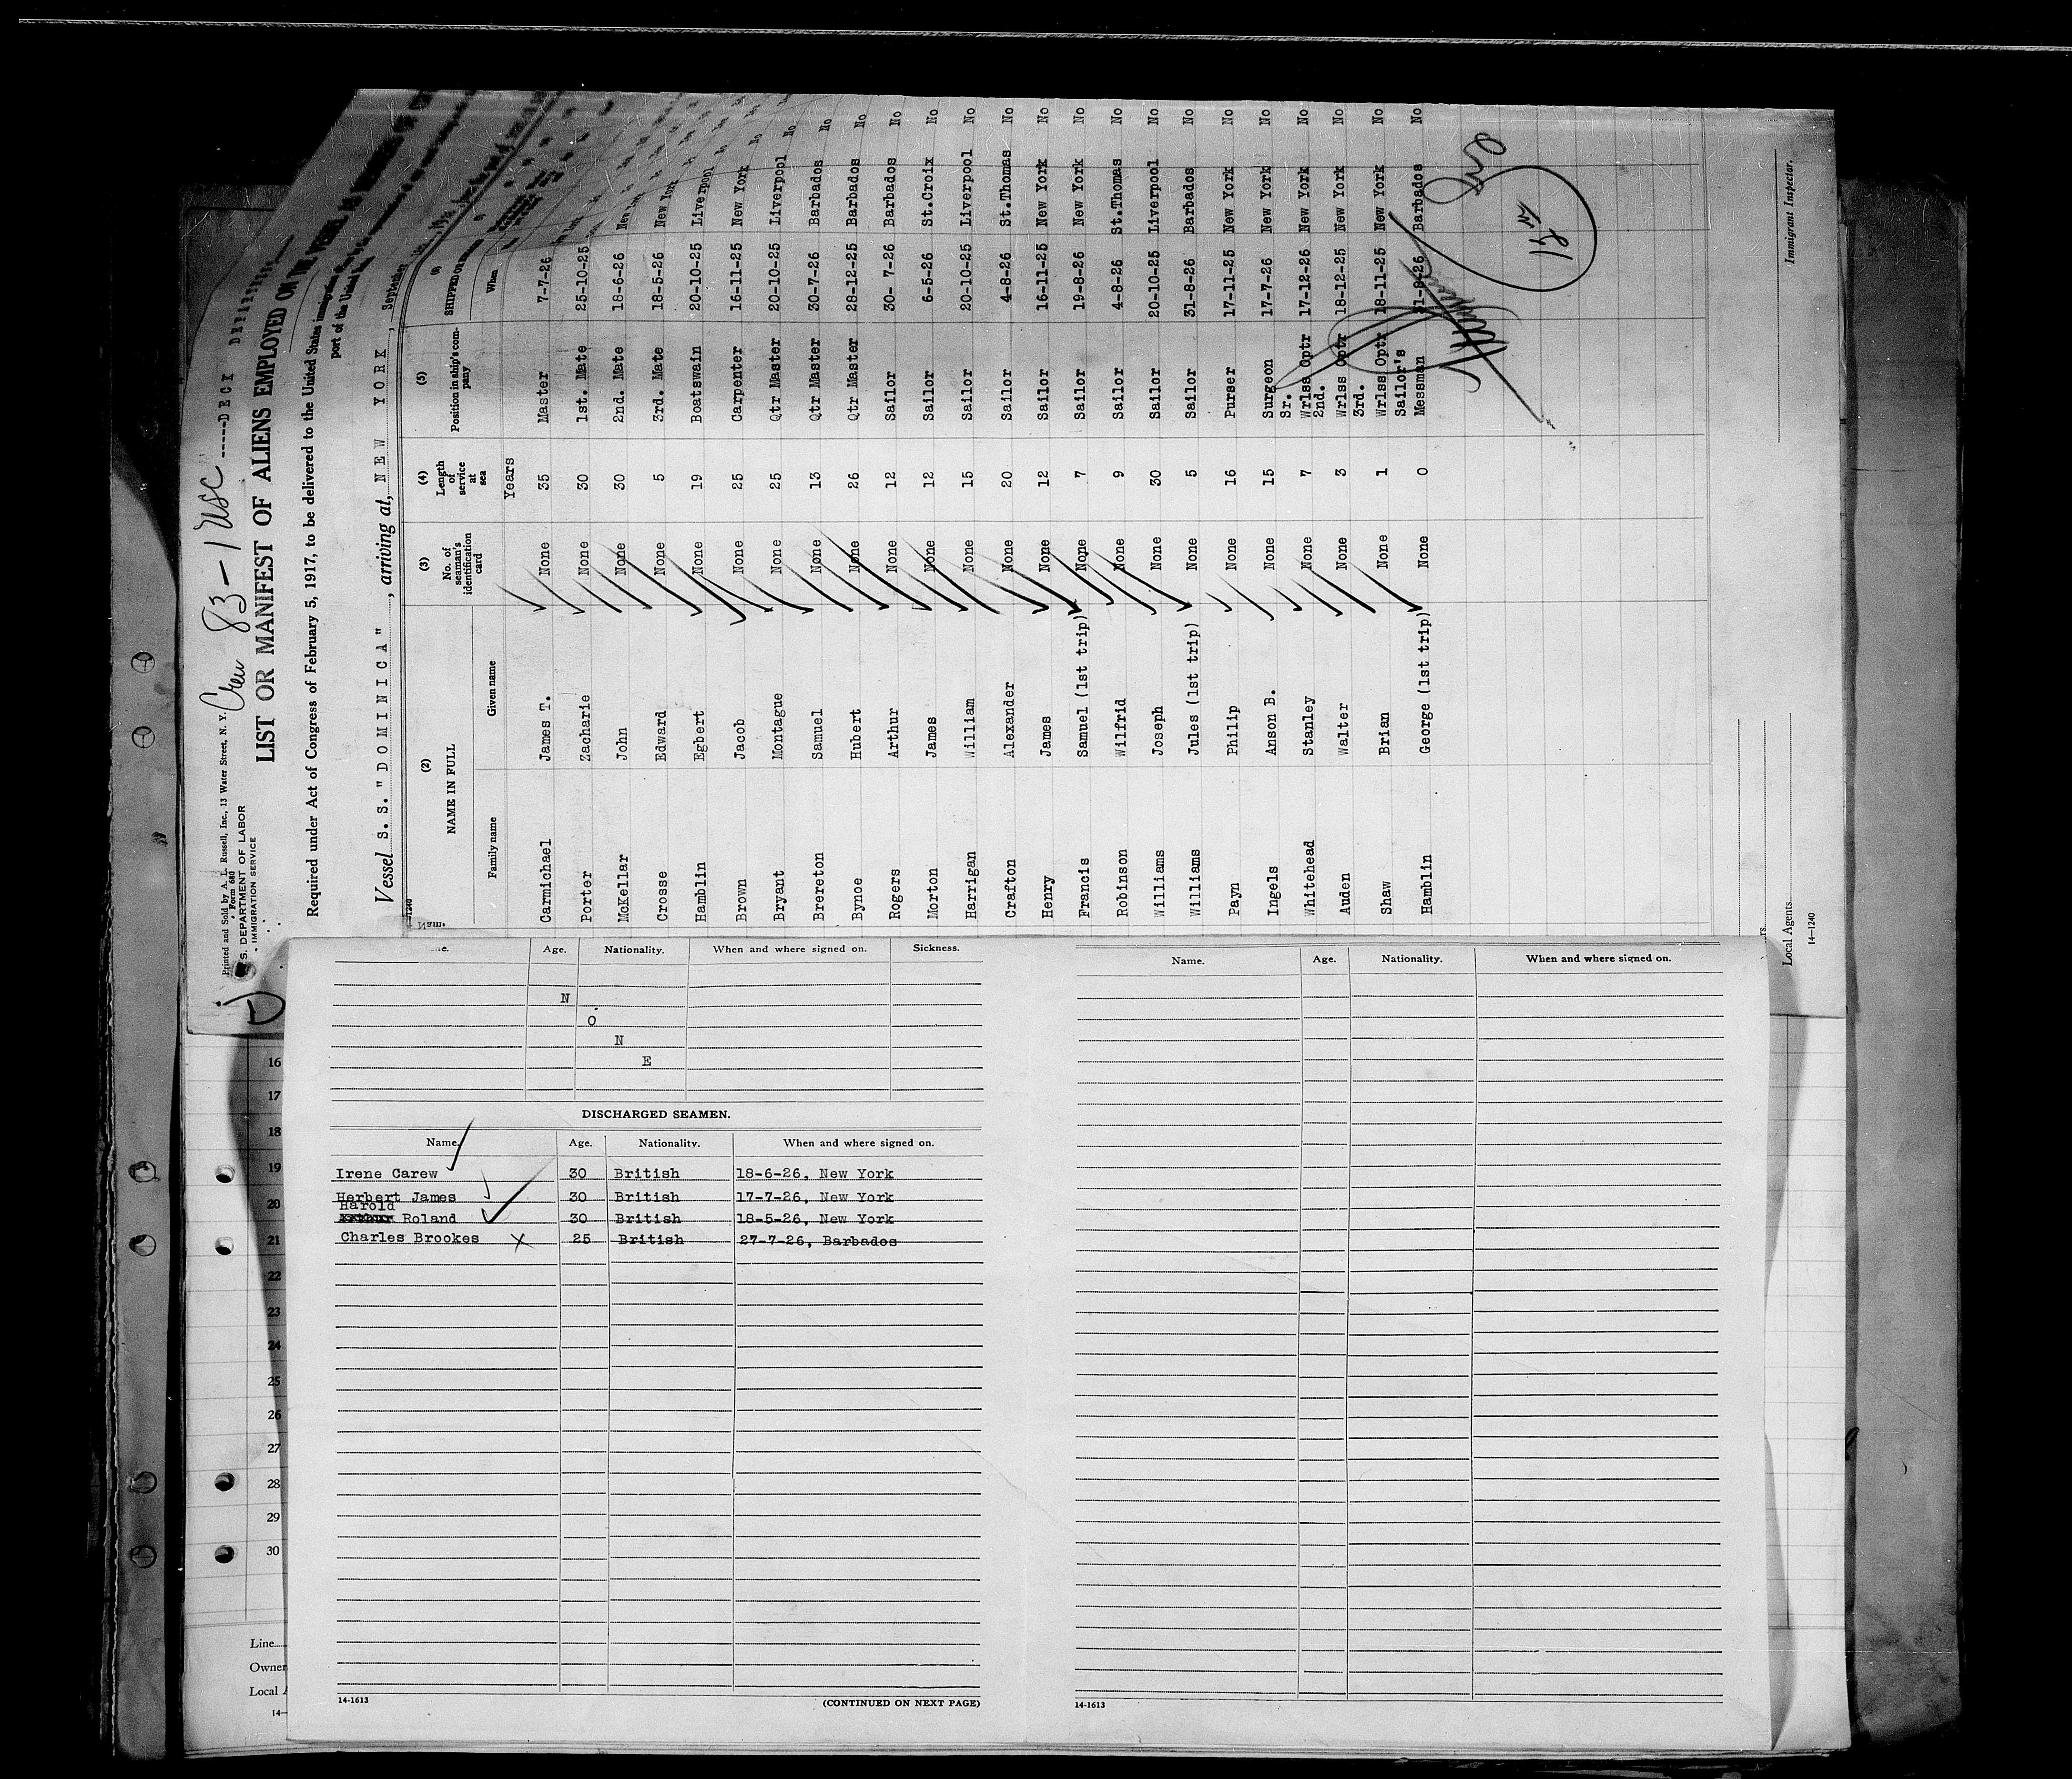 Printed and Sold by A. L. Russell, Inc., 13 Water Street, N. Y.
Form 680
S. DEPARTMENT OF LABOR
IMMIGRATION SERVICE
Crew 83-1 USC -----DECK
LIST OR MANIFEST OF ALIENS EMPLOYED ON THE VESSEL
Required under Act of Congress of February 5, 1917, to be delivered to the United States
port of the United
Vessel S. S. "DOMINICA", arriving at, NEW YORK, September
(2) (3) (4) (5) (6)
NAME IN FULL No. of seaman's identification card Length of service at sea Position in ship's company SHIPPED OR
Family name Given name When
Years
Carmichael James T. None 35 Master 7-7-26
Porter Zacharie None 30 1st. Mate 25-10-25
McKellar John None 30 2nd. Mate 18-6-26 New York No
Crosse Edward None 5 3rd. Mate 18-5-26 New York No
Hamblin Egbert None 19 Boatswain 20-10-25 Liverpool No
Brown Jacob None 25 Carpenter 16-11-25 New York No
Bryant Montague None 25 Qtr Master 20-10-25 Liverpool No
Brereton Samuel None 13 Qtr Master 30-7-26 Barbados No
Bynoe Hubert None 26 Qtr Master 28-12-25 Barbados No
Rogers Arthur None 12 Sailor 30-7-26 Barbados No
Morton James None 12 Sailor 6-5-26 St.Croix No
Harrigan William None 15 Sailor 20-10-25 Liverpool No
Crafton Alexander None 20 Sailor 4-8-26 St.Thomas No
Henry James None 12 Sailor 16-11-25 New York No
Francis Samuel (1st trip) None 7 Sailor 19-8-26 New York No
Robinson Wilfrid None 9 Sailor 4-8-26 St.Thomas No
Williams Joseph None 30 Sailor 20-10-25 Liverpool No
Williams Jules (1st trip) None 5 Sailor 31-8-26 Barbados No
Payn Philip None 16 Purser 17-11-25 New York No
Ingels Anson B. None 15 Surgeon 17-7-26 New York No
Sr.
Whitehead Stanley None 7 Wrlss Optr 17-12-26 New York No
2nd.
Auden Walter None 3 Wrlss Optr 18-12-25 New York No
3rd.
Shaw Brian None 1 Wrlss Optr 18-11-25 New York No
Sailor's
Hamblin George (1st trip) None 0 Messman 31-8-26 Barbados No
Immigrant Inspector.
Local Agents
14-1240
Age. Nationality. When and where signed on. Sickness.
N
O
N
E
DISCHARGED SEAMEN.
Name. Age. Nationality. When and where signed on.
Irene Carew 30 British 18-6-26, New York
Herbert James 30 British 17-7-26, New York
Harold
Arthur Roland 30 British 18-5-26, New York
Charles Brookes 25 British 27-7-26, Barbados
14-1613 (CONTINUED ON NEXT PAGE)
Name. Age. Nationality. When and where signed on.
14-1613
16
17
18
19
20
21
22
23
24
25
26
27
28
29
30
Line
Owner
Local
14-